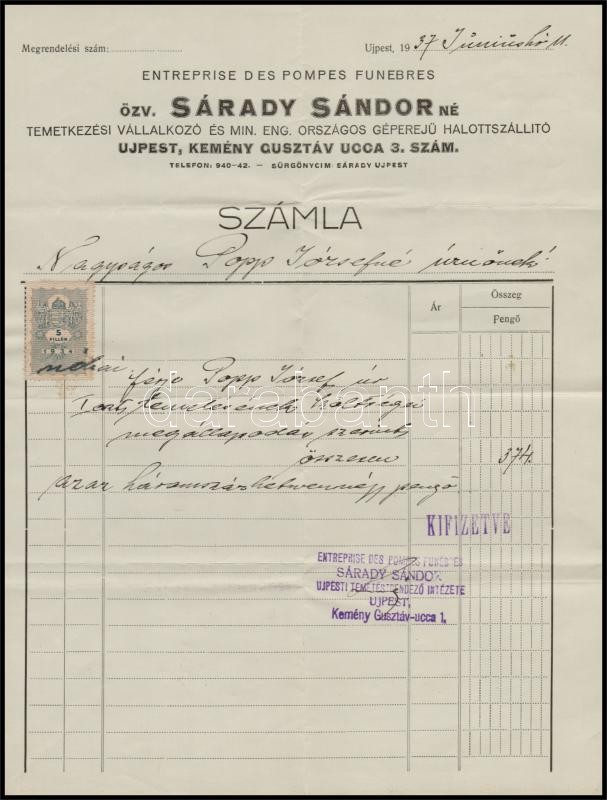 Megrendelési szám:
Ujpest, 1937 Júniushó 11.
ENTREPRISE DES POMPES FUNEBRES
ÖZV. SÁRADY SÁNDORNÉ
TEMETKEZÉSI VÁLLALKOZÓ ÉS MIN. ENG. ORSZÁGOS GÉPEREJŰ HALOTTSZÁLLITÓ
UJPEST, KEMÉNY GUSZTÁV UCCA 3. SZÁM.
TELEFON: 940-42. — SÜRGÖNYCIM: SÁRADY UJPEST
SZÁMLA
Nagyságos Popp Józsefné úrnőnek
Ár
Összeg
Pengő
5
FILLÉR
1934
néhai férje Popp József úr
temetésének költségei
megállapodás szerint
összesen 374.
azaz háromszázhetvennégy pengő
KIFIZETVE
ENTREPRISE DES POMPES FUNEBRES
SÁRADY SÁNDOR
UJPESTI TEMETÉSRENDEZŐ INTÉZETE
UJPEST,
Kemény Gusztáv-ucca 1.
darabanth